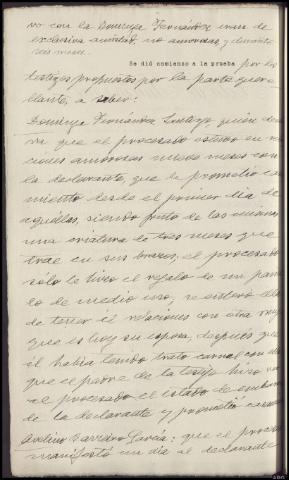 vo con la Dominga Fernández eran de
exclusiva amistad, no amorosas, y durante
seis meses.
Se dió comienzo a la prueba por los
testigos propuestos por la parte quere-
llante, a saber:
Dominga Fernández Santiago quien decla-
ra que el procesado estuvo en rela-
ciones amorosas nueve meses con
la declarante, que le prometió casa-
miento desde el primer día de
aquéllas, siendo fruto de las mismas
una criatura de tres meses que
trae en sus brazos; el procesado
sólo le hizo el regalo de un pañue-
lo de medio uso; se enteró ella
de tener él relaciones con otra muj
que es hoy su esposa, después que
él había tenido trato carnal con ella
que el padre de la testigo hizo
el procesado el estado de embara
de la declarante y prometió casarse
Avelino García: que el procesado
manifestó un día al declarante